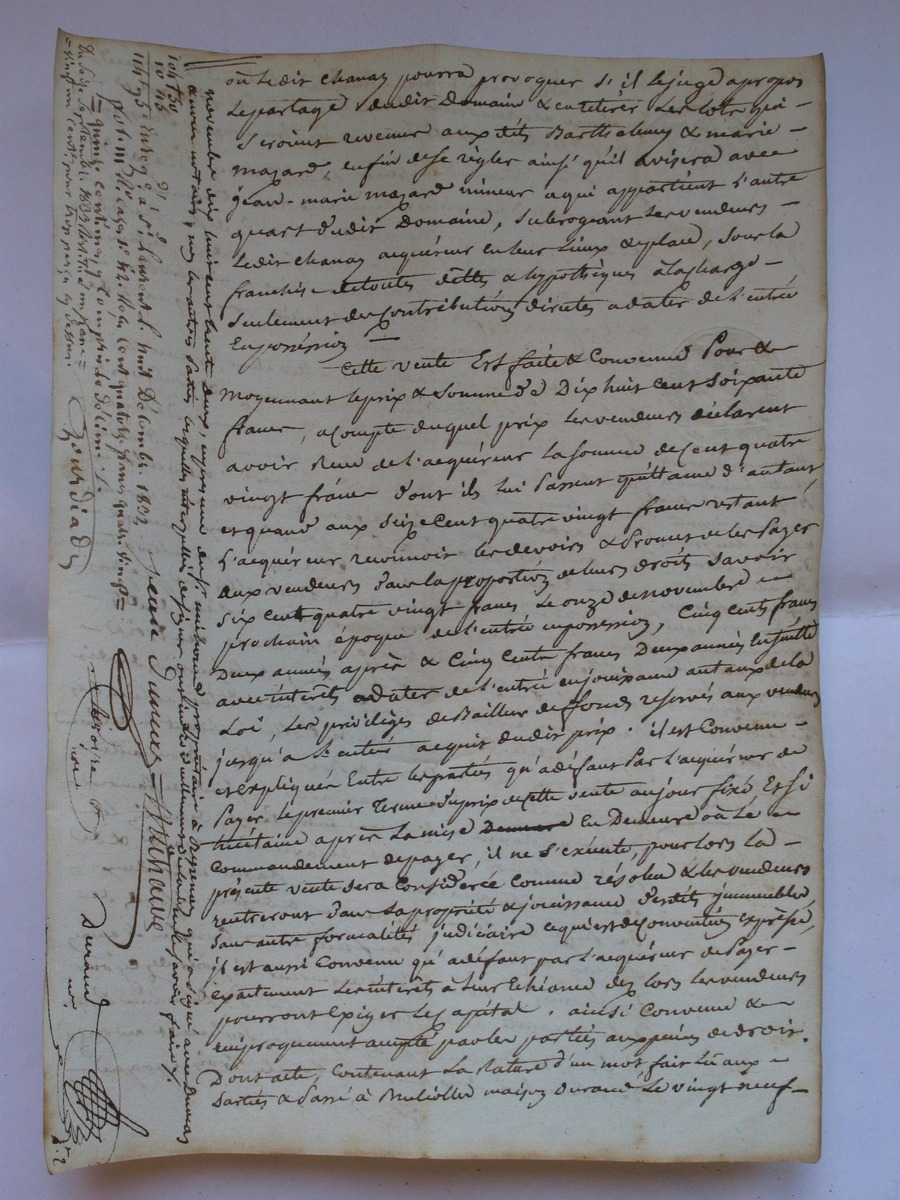 ou ledit chanay pourra provoquer s'il le juge apropos
le partage dudit Domaine & en retirer les lots qui
seroient revenus aux dits Barthelemy & marie
mazard, enfin de se règler ainsi qu'il avisera avec
jean-marie mazard mineur a qui appartient l'autre
quart dudit Domaine, subrogeant les vendeurs
ledit chanay acquéreur en leur lieux & place, sous la
franchise de toutes dettes & hypothèques à la charge
seulement des contributions directes a dater de l'entrée
en possession
Cette vente Est faite & Convenue Pour &
moyennant le prix & somme de Dix huit cent soixante
francs, acompte duquel prix les vendeurs déclarent
avoir Reçu de l'acquéreur la somme de cent quatre
vingt francs dont ils lui Passent quittance d'autant
et quand aux seize Cent quatre vingt francs restant
L'acquéreur reconnoit les devoirs & Promet de les Payer
aux vendeurs dans la proportion de leurs droits savoir
Six cent quatre vingt francs le onze de novembre
prochain époque de l'entrée en possession, Cinq cents francs
Deux années après & Cinq Cents francs Deux années Ensuitte
avec intérêts adater de l'entrée en jouissance au taux de la
Loi, Les privilèges de Bailleur de fonds réservés aux vendeurs
jusqu'a l'entier acquit dudit prix. il est Convenu
et Expliqué Entre les parties qu'a défaut Par l'acquéreur de
Payer le premier Terme du prix de cette vente au jour fixé Et si
huitaine après la mise En Demeure où Le
Commandement de payer, il ne s'exécute, pour lors la
présente vente sera Considerée Comme résolue & les vendeurs
rentreront dans la propriété & jouissance desdits immeubles
sans autre formalités judiciaire ce qui est de Convention expresse,
il est aussi Convenu qu'a défaut par l'acquéreur de Payer
exactement les intérêts à leur Echéance dez lors les vendeurs
pourront Exiger le Capital. ainsi Convenu &
réciproquement accepté par les parties aux peines de droit.
Dont acte, Contenant La Rature d'un mot fait Lu aux
Parties & Passé à maison Durand Le vingt neuf
novembre dix huit cent trente deux, en présence de
propriétaire à qui a signé avec Dumas
& nous notaire, non les autres parties lesquelles interpellées de signer ont individuellement déclaré ne le savoir faire.
Dumas
Durand
104 50
10 45
114 95
Enregé à St Laurent le huit Décembre 1832
fol. 111 Rº cases Rec. cent quatorze francs quatre vingt
quinze centimes y compris le décime
Gourdiade